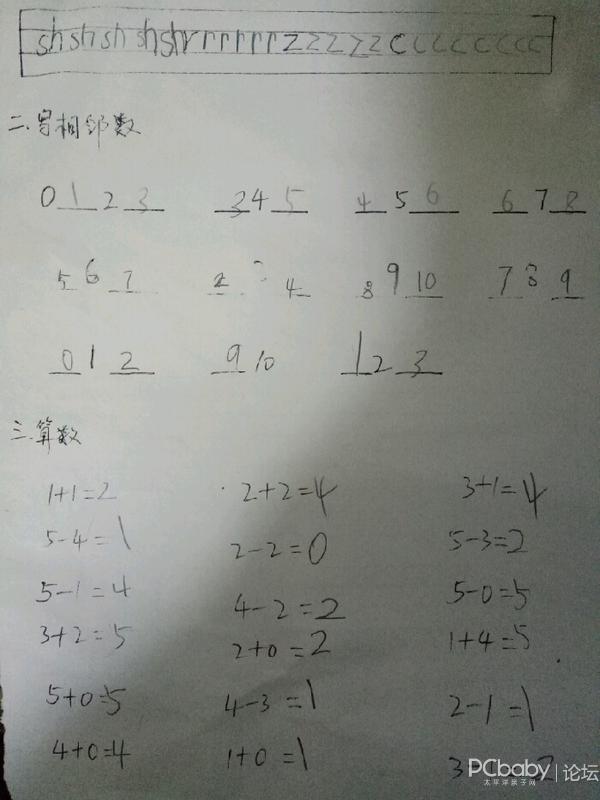 sh sh sh sh sh r r r r r r z z z z z c c c c c c c c
二.写相邻数
0 1 2 3 3 4 5 4 5 6 6 7 8
5 6 7 2 3 4 8 9 10 7 8 9
0 1 2 9 10 1 2 3
三.算数
1+1=2 2+2=4 3+1=4
5-4=1 2-2=0 5-3=2
5-1=4 4-2=2 5-0=5
3+2=5 2+0=2 1+4=5
5+0=5 4-3=1 2-1=1
4+0=4 1+0=1 3-1=2
PCbaby 论坛
太平洋亲子网